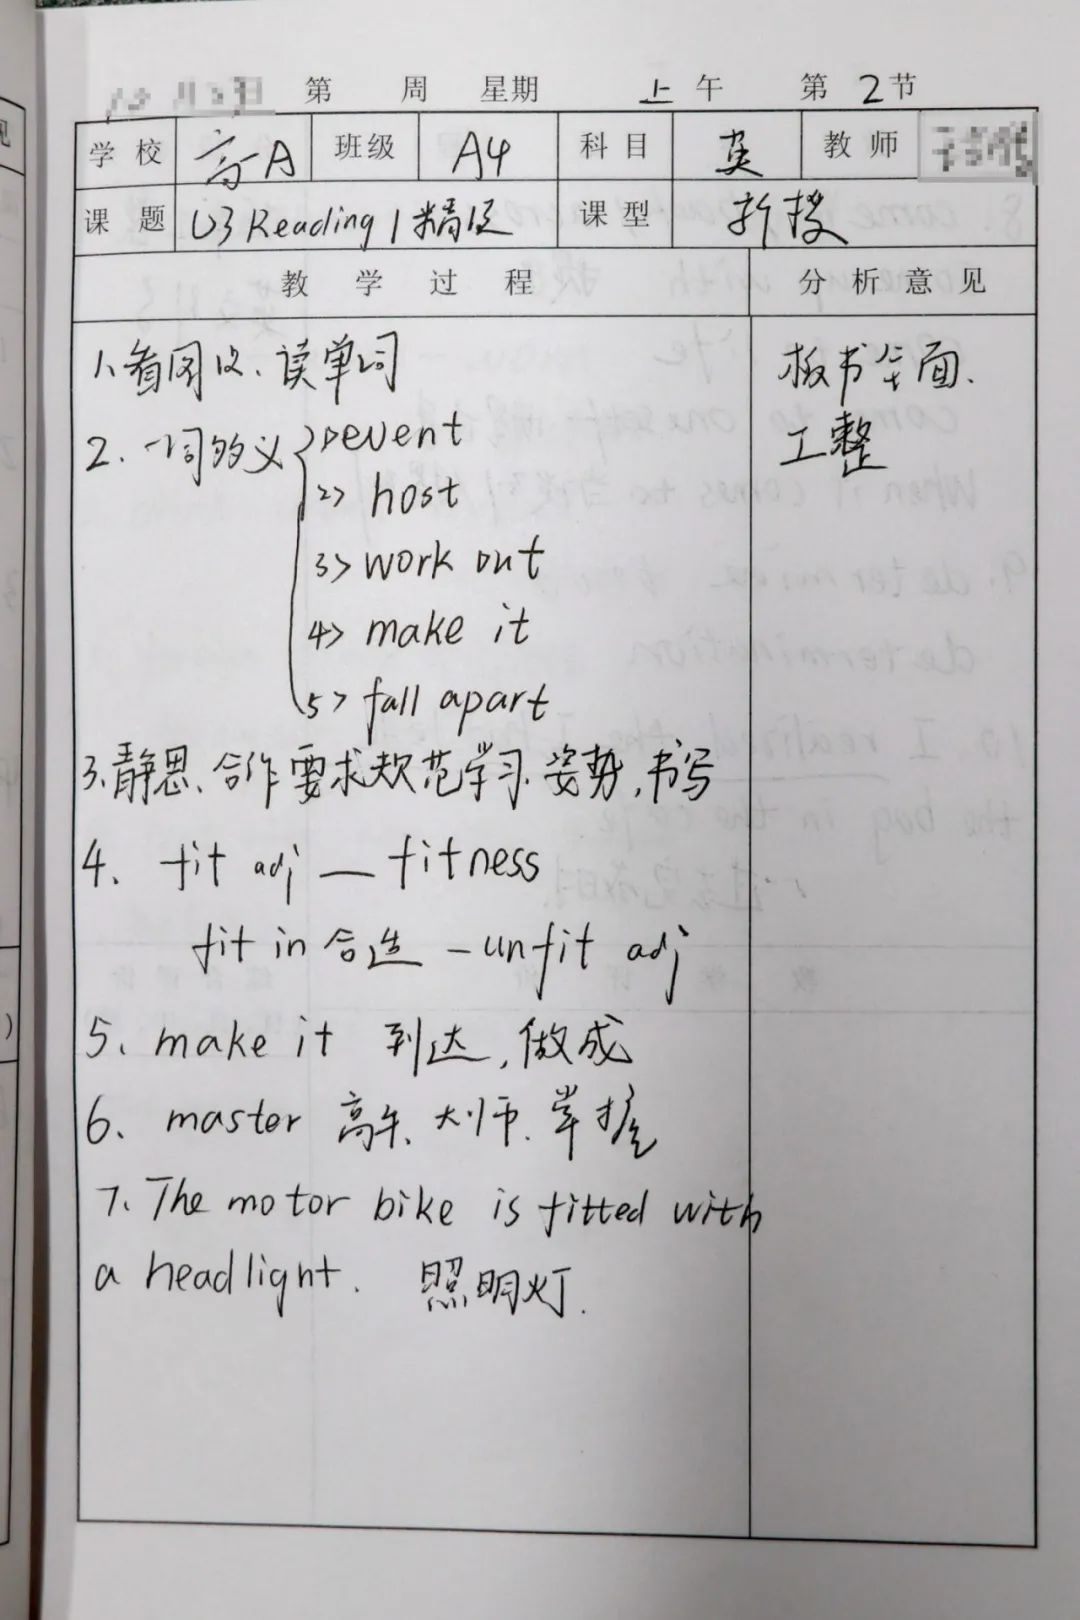 第 周 星期 上午 第2节
学校 高一A 班级 A4 科目 英 教师
课题 U3 Reading 1 精 课型 新授
教学过程 分析意见
1、看图 、读单词
2、一词多义 1> event
2> host
3> work out
4> make it
5> fall apart
3、静思、合作要求规范学习、姿势,书写
4、fit adj — fitness
fit in 合适 — unfit adj
5、make it 到达,做成
6、master 高手、大师、掌握
7、The motor bike is fitted with
a headlight. 照明灯.
板书全面、
工整